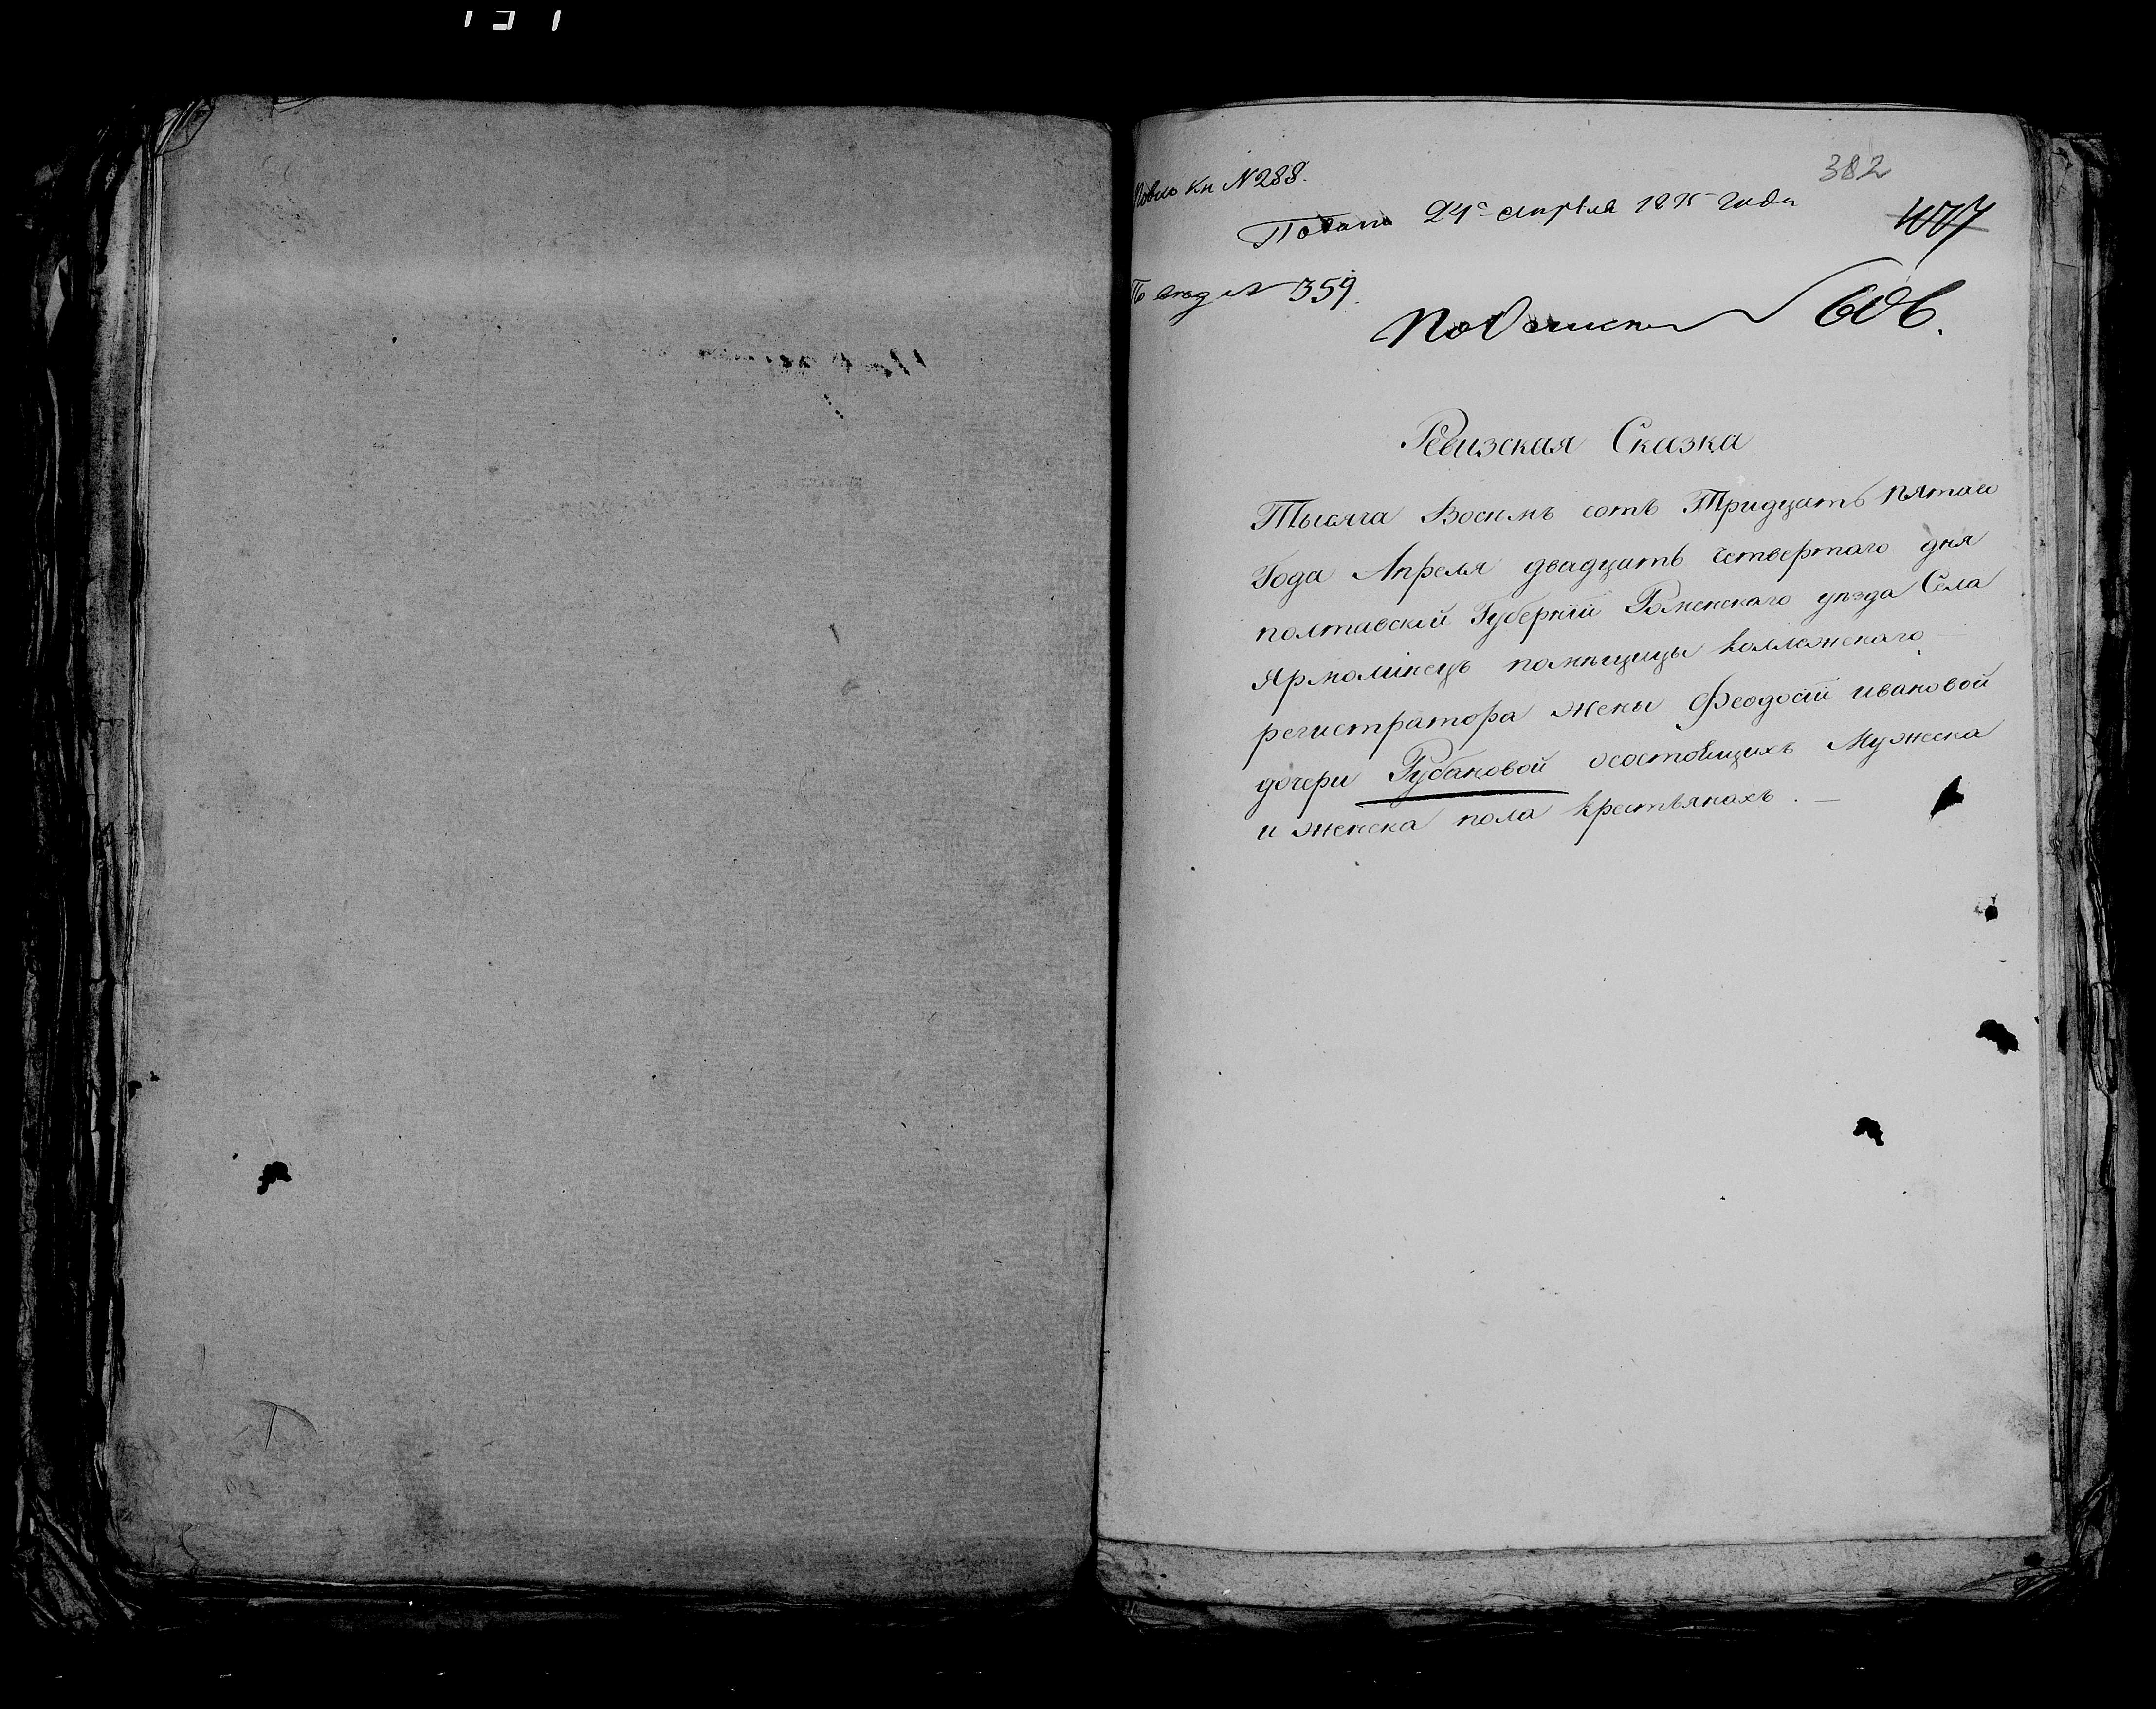 382
кн N 288.
Подана 24º апреля 1835 года
407
359.
606.
Ревизская Сказка
Тысяча Восимъ сотъ Тридцать пятаго
Года Апреля двадцать четвертаго дня
полтавскій Губерніи Роменскаго уезда Села
Ярмолінецъ помѣщицы коллежскаго
регистратора жены Феодосіи ивановой
дочери Рубановой осостоящихъ Мужеска
и женска пола крестьянахъ. —